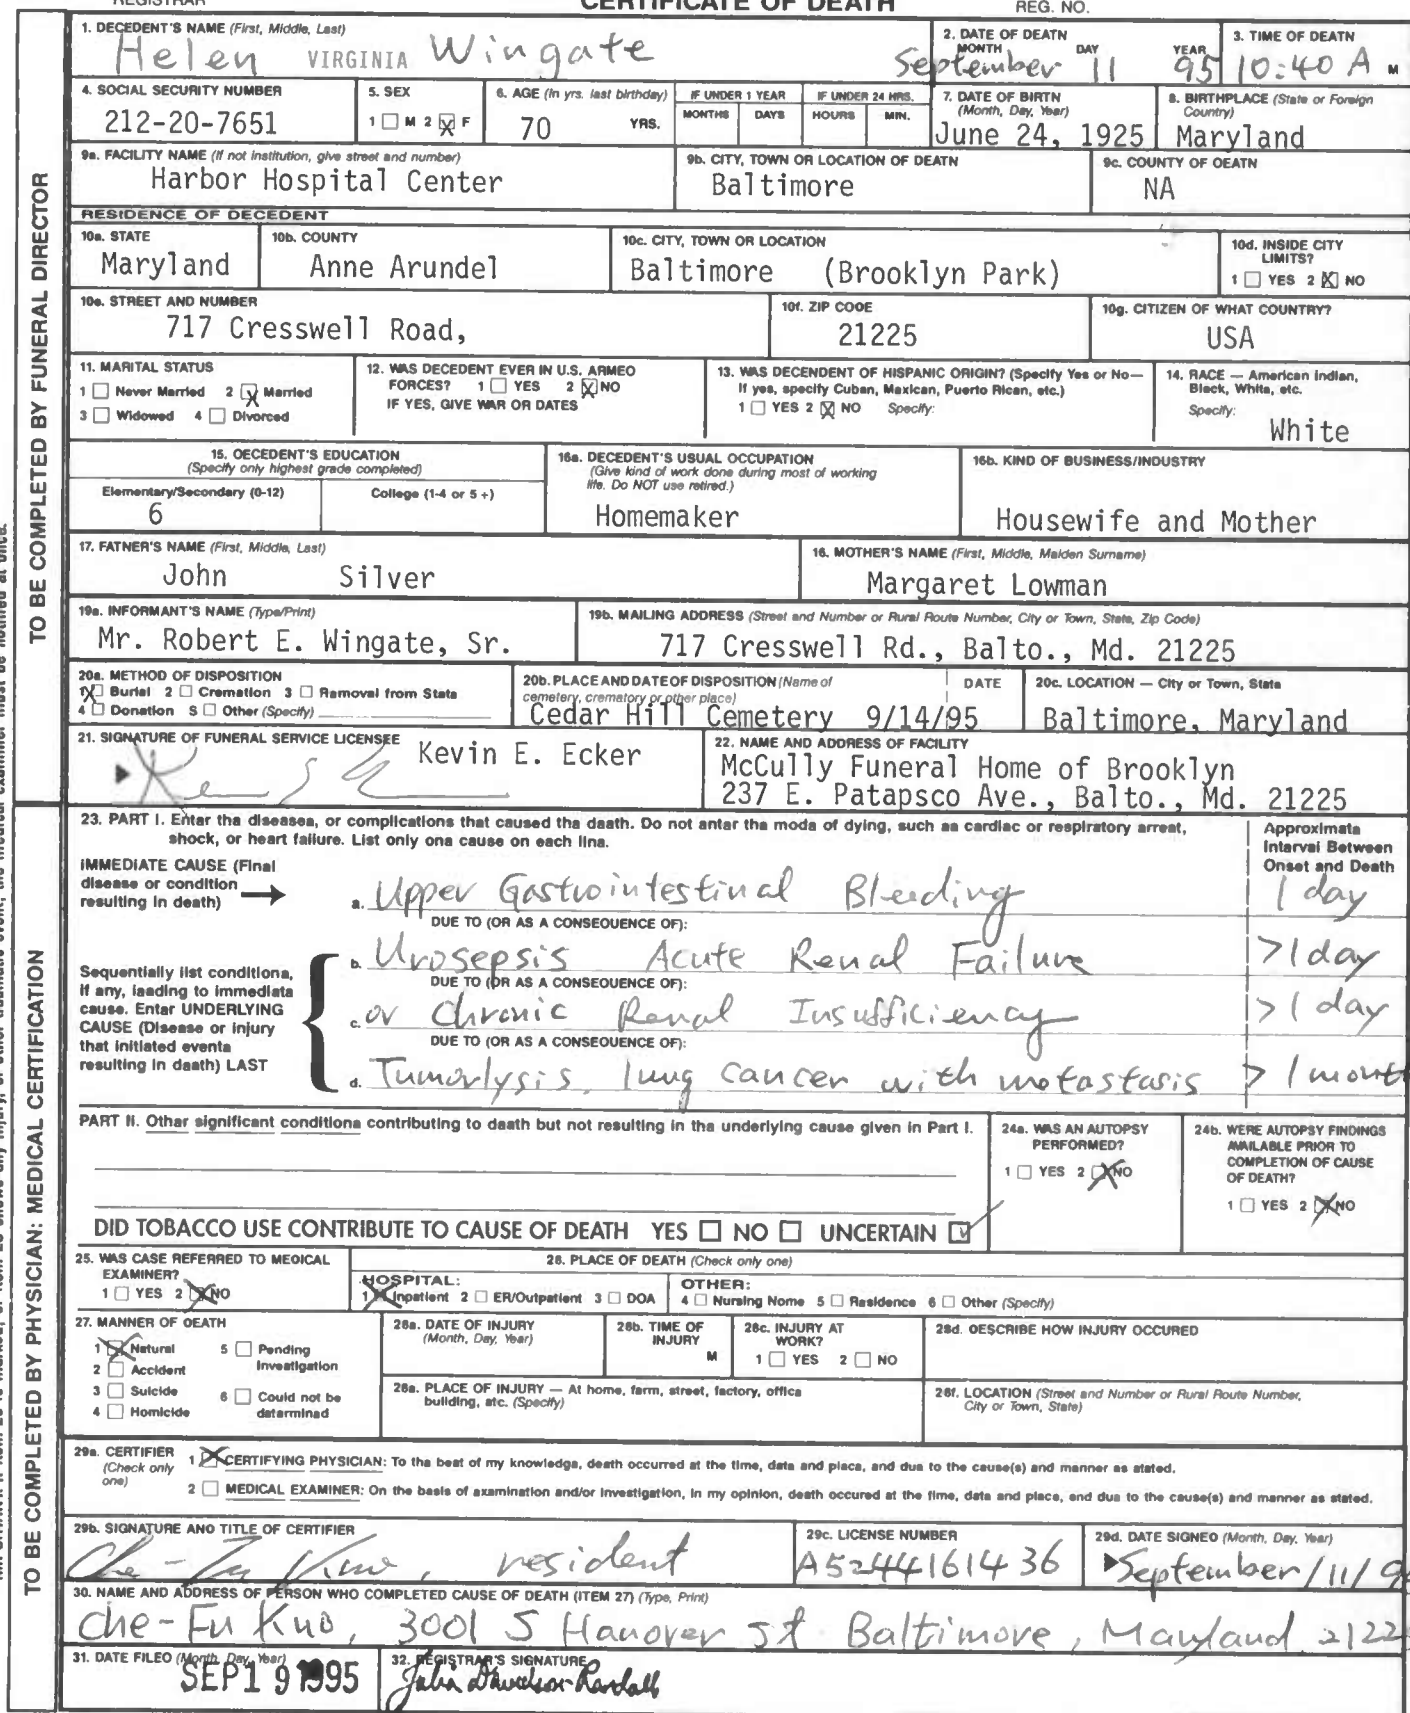 REGISTRAR CERTIFICATE OF DEATH REG. NO.
1. DECEDENT'S NAME (First, Middle, Last)
Helen VIRGINIA Wingate
2. DATE OF DEATH
MONTH DAY YEAR
September 11 95
3. TIME OF DEATH
10:40 A M
4. SOCIAL SECURITY NUMBER
212-20-7651
5. SEX
1 M 2 X F
6. AGE (In yrs. last birthday)
70 YRS.
IF UNDER 1 YEAR
MONTHS DAYS
IF UNDER 24 HRS.
HOURS MIN.
7. DATE OF BIRTH
(Month, Day, Year)
June 24, 1925
8. BIRTHPLACE (State or Foreign
Country)
Maryland
9a. FACILITY NAME (If not institution, give street and number)
Harbor Hospital Center
9b. CITY, TOWN OR LOCATION OF DEATH
Baltimore
9c. COUNTY OF DEATH
NA
RESIDENCE OF DECEDENT
10a. STATE
Maryland
10b. COUNTY
Anne Arundel
10c. CITY, TOWN OR LOCATION
Baltimore (Brooklyn Park)
10d. INSIDE CITY
LIMITS?
1 YES 2 X NO
10e. STREET AND NUMBER
717 Cresswell Road,
10f. ZIP CODE
21225
10g. CITIZEN OF WHAT COUNTRY?
USA
11. MARITAL STATUS
1 Never Married 2 X Married
3 Widowed 4 Divorced
12. WAS DECEDENT EVER IN U.S. ARMED
FORCES? 1 YES 2 X NO
IF YES, GIVE WAR OR DATES
13. WAS DECENDENT OF HISPANIC ORIGIN? (Specify Yes or No—
If yes, specify Cuban, Mexican, Puerto Rican, etc.)
1 YES 2 X NO Specify:
14. RACE — American Indian,
Black, White, etc.
Specify:
White
15. DECEDENT'S EDUCATION
(Specify only highest grade completed)
Elementary/Secondary (0-12) College (1-4 or 5 +)
6
16a. DECEDENT'S USUAL OCCUPATION
(Give kind of work done during most of working
life. Do NOT use retired.)
Homemaker
16b. KIND OF BUSINESS/INDUSTRY
Housewife and Mother
17. FATHER'S NAME (First, Middle, Last)
John Silver
18. MOTHER'S NAME (First, Middle, Maiden Surname)
Margaret Lowman
19a. INFORMANT'S NAME (Type/Print)
Mr. Robert E. Wingate, Sr.
19b. MAILING ADDRESS (Street and Number or Rural Route Number, City or Town, State, Zip Code)
717 Cresswell Rd., Balto., Md. 21225
20a. METHOD OF DISPOSITION
1 X Burial 2 Cremation 3 Removal from State
4 Donation 5 Other (Specify)
20b. PLACE AND DATE OF DISPOSITION (Name of
cemetery, crematory or other place) DATE
Cedar Hill Cemetery 9/14/95
20c. LOCATION — City or Town, State
Baltimore, Maryland
21. SIGNATURE OF FUNERAL SERVICE LICENSEE
Kevin E. Ecker
22. NAME AND ADDRESS OF FACILITY
McCully Funeral Home of Brooklyn
237 E. Patapsco Ave., Balto., Md. 21225
TO BE COMPLETED BY FUNERAL DIRECTOR
23. PART I. Enter the diseases, or complications that caused the death. Do not enter the mode of dying, such as cardiac or respiratory arrest,
shock, or heart failure. List only one cause on each line.
Approximate
Interval Between
Onset and Death
IMMEDIATE CAUSE (Final
disease or condition
resulting in death)
a. Upper Gastrointestinal Bleeding 1 day
DUE TO (OR AS A CONSEQUENCE OF):
b. Urosepsis Acute Renal Failure >1 day
DUE TO (OR AS A CONSEQUENCE OF):
c. or Chronic Renal Insufficiency >1 day
DUE TO (OR AS A CONSEQUENCE OF):
d. Tumorlysis, lung cancer with metastasis > 1 month
Sequentially list conditions,
if any, leading to immediate
cause. Enter UNDERLYING
CAUSE (Disease or injury
that initiated events
resulting in death) LAST
PART II. Other significant conditions contributing to death but not resulting in the underlying cause given in Part I.
24a. WAS AN AUTOPSY
PERFORMED?
1 YES 2 X NO
24b. WERE AUTOPSY FINDINGS
AVAILABLE PRIOR TO
COMPLETION OF CAUSE
OF DEATH?
1 YES 2 X NO
DID TOBACCO USE CONTRIBUTE TO CAUSE OF DEATH YES NO UNCERTAIN
25. WAS CASE REFERRED TO MEDICAL
EXAMINER?
1 YES 2 X NO
26. PLACE OF DEATH (Check only one)
HOSPITAL:
1 X Inpatient 2 ER/Outpatient 3 DOA
OTHER:
4 Nursing Home 5 Residence 6 Other (Specify)
27. MANNER OF DEATH
1 X Natural 5 Pending
2 Accident Investigation
3 Suicide 6 Could not be
4 Homicide determined
28a. DATE OF INJURY
(Month, Day, Year)
28b. TIME OF
INJURY
M
28c. INJURY AT
WORK?
1 YES 2 NO
28d. DESCRIBE HOW INJURY OCCURED
28e. PLACE OF INJURY — At home, farm, street, factory, office
building, etc. (Specify)
28f. LOCATION (Street and Number or Rural Route Number,
City or Town, State)
29a. CERTIFIER
(Check only
one)
1 X CERTIFYING PHYSICIAN: To the best of my knowledge, death occurred at the time, date and place, and due to the cause(s) and manner as stated.
2 MEDICAL EXAMINER: On the basis of examination and/or investigation, in my opinion, death occured at the time, date and place, and due to the cause(s) and manner as stated.
29b. SIGNATURE AND TITLE OF CERTIFIER
Che-Fu Kuo, resident
29c. LICENSE NUMBER
A52444161436
29d. DATE SIGNED (Month, Day, Year)
September/11/9
30. NAME AND ADDRESS OF PERSON WHO COMPLETED CAUSE OF DEATH (ITEM 27) (Type, Print)
Che-Fu Kuo, 3001 S Hanover st Baltimore, Maryland 2122
31. DATE FILED (Month, Day, Year)
SEP 19 1995
32. REGISTRAR'S SIGNATURE
Julia Davidson-Randall
TO BE COMPLETED BY PHYSICIAN: MEDICAL CERTIFICATION